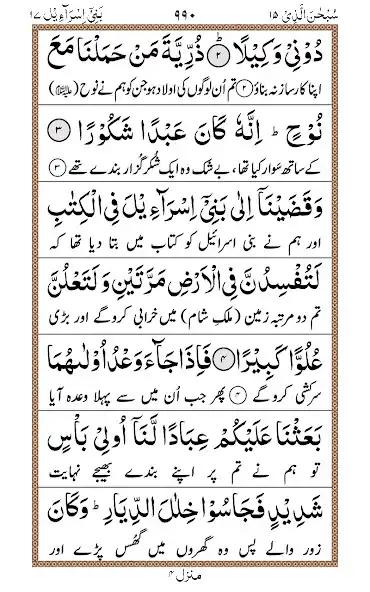 سُبْحٰنَ الَّذِیْ ۱۵ ۹۹۰ بَنِیْۤ اِسْرَآءِیْل ۱۷
دُوْنِیْ وَكِیْلًا ۟ۙ۲ ذُرِّیَّةَ مَنْ حَمَلْنَا مَعَ
اپنا کارساز نہ بناؤ ۲ تم اُن لوگوں کی اولاد ہو جن کو ہم نے نوح (علیہ السلام)
نُوْحٍ ؕ اِنَّهٗ كَانَ عَبْدًا شَكُوْرًا ۳
کے ساتھ سوار کیا تھا، بے شک وہ ایک شکر گزار بندے تھے ۳
وَقَضَیْنَاۤ اِلٰی بَنِیْۤ اِسْرَآءِیْلَ فِی الْكِتٰبِ
اور ہم نے بنی اسرائیل کو کتاب میں بتا دیا تھا کہ
لَتُفْسِدُنَّ فِی الْاَرْضِ مَرَّتَیْنِ وَلَتَعْلُنَّ
تم دو مرتبہ زمین (ملکِ شام) میں خرابی کرو گے اور بڑی
عُلُوًّا كَبِیْرًا ۴ فَاِذَا جَآءَ وَعْدُ اُوْلٰىهُمَا
سرکشی کرو گے ۴ پھر جب اُن میں سے پہلا وعدہ آیا
بَعَثْنَا عَلَیْكُمْ عِبَادًا لَّنَاۤ اُولِیْ بَاْسٍ
تو ہم نے تم پر اپنے بندے بھیجے نہایت
شَدِیْدٍ فَجَاسُوْا خِلٰلَ الدِّیَارِ ؕ وَكَانَ
زور والے پس وہ گھروں میں گھُس پڑے اور
منزل ۴